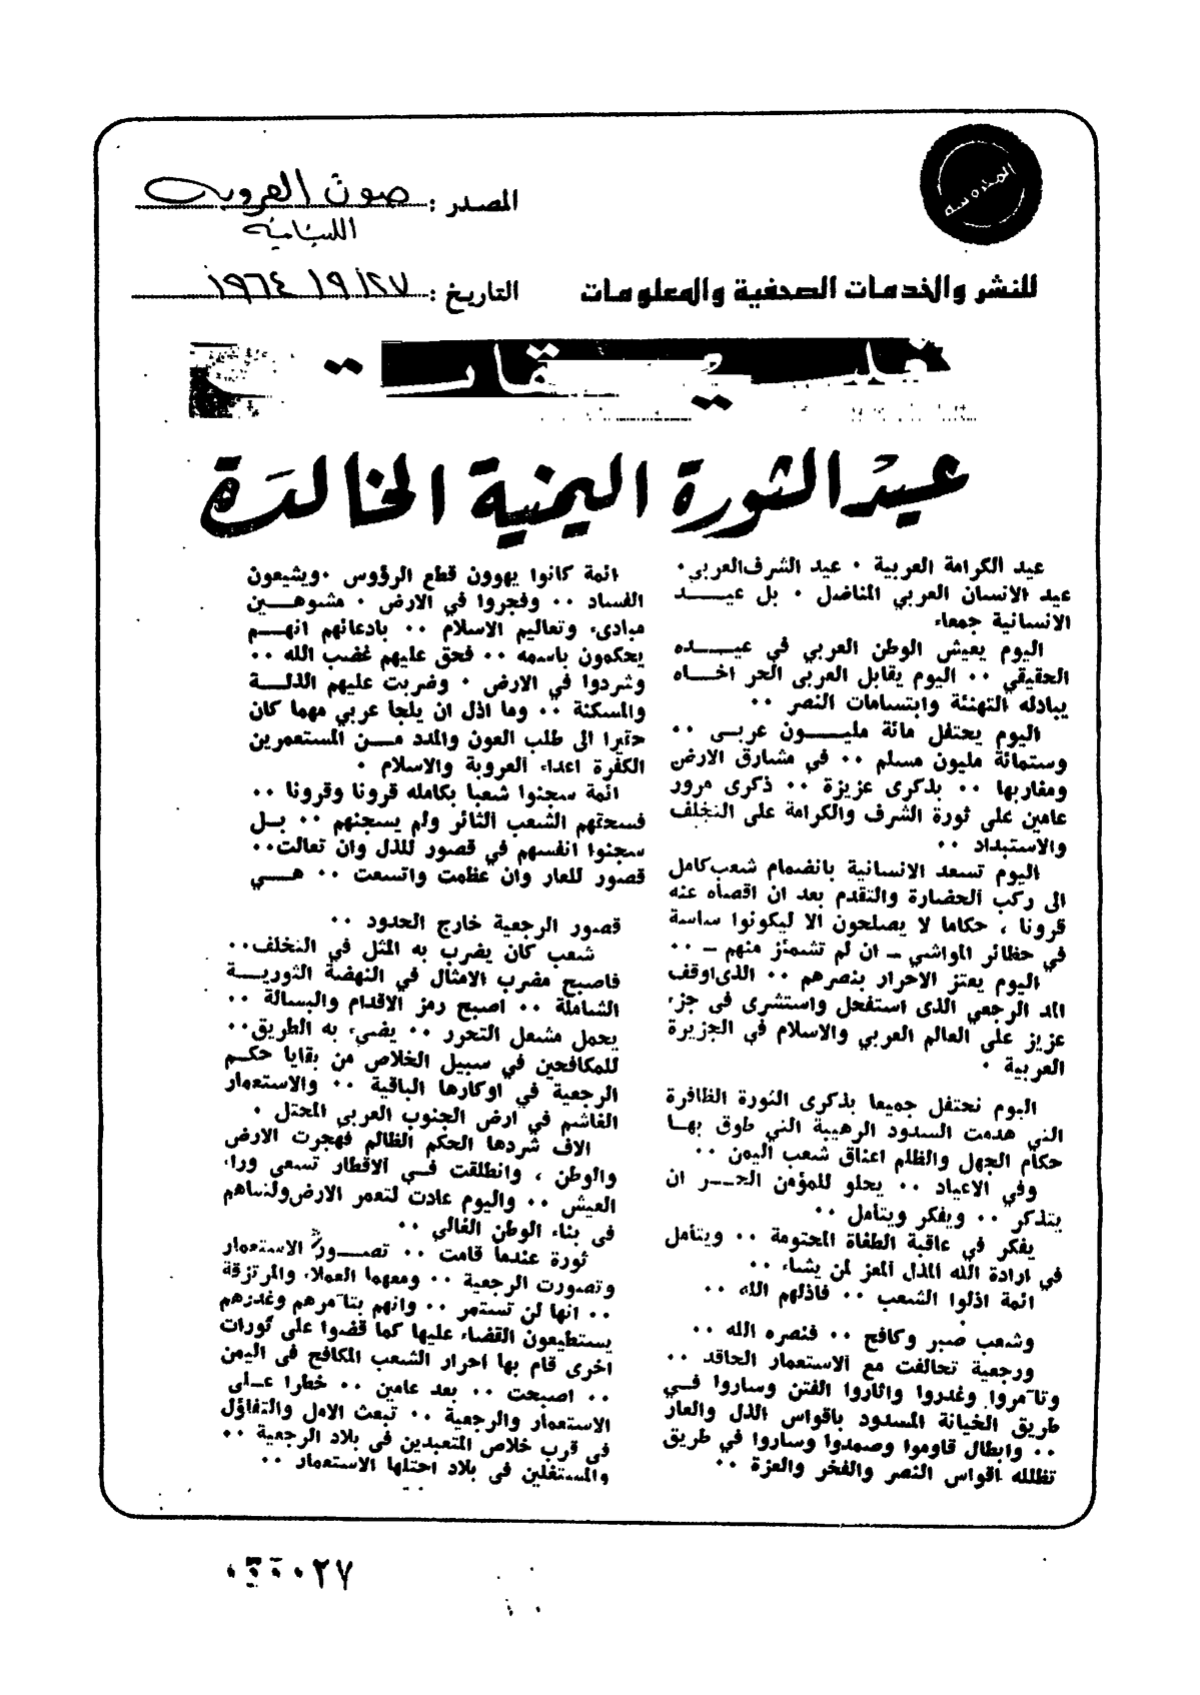 المدروسه
المصدر : صوت العروبه
اللبنانيه
للنشر والخدمات الصحفية والمعلومات
التاريخ : ١٩٦٤/٩/٢٧
تعليقات
عيد الثورة اليمنية الخالدة
عيد الكرامة العربية ٠ عيد الشرف العربي ٠
عيد الانسان العربي المناضل ٠ بل عيد
الانسانية جمعاء
اليوم يعيش الوطن العربي في عيده
الحقيقي ٠٠ اليوم يقابل العربى الحر اخاه
يبادله التهنئة وابتسامات النصر ٠٠
اليوم يحتفل مائة مليون عربى ٠٠
وستمائة مليون مسلم ٠٠ في مشارق الارض
ومغاربها ٠٠ بذكرى عزيزة ٠٠ ذكرى مرور
عامين على ثورة الشرف والكرامة على التخلف
والاستبداد ٠٠
اليوم تسعد الانسانية بانضمام شعب كامل
الى ركب الحضارة والتقدم بعد ان اقصاه عنه
قرونا ، حكاما لا يصلحون الا ليكونوا ساسة
في حظائر المواشي ـ ان لم تشمئز منهم ـ ٠٠
اليوم يعتز الاحرار بنصرهم ٠٠ الذى اوقف
المد الرجعي الذى استفحل واستشرى فى جزء
عزيز على العالم العربي والاسلام في الجزيرة
العربية ٠
اليوم نحتفل جميعا بذكرى الثورة الظافرة
التي هدمت السدود الرهيبة التي طوق بها
حكام الجهل والظلم اعناق شعب اليمن ٠٠
وفي الاعياد ٠٠ يحلو للمؤمن الحر ان
يتذكر ٠٠ ويفكر ويتأمل ٠٠
يفكر في عاقبة الطغاة المحتومة ٠٠ ويتأمل
في ارادة الله المذل المعز لمن يشاء ٠٠
ائمة اذلوا الشعب ٠٠ فاذلهم الله ٠٠
وشعب صبر وكافح ٠٠ فنصره الله ٠٠
ورجعية تحالفت مع الاستعمار الحاقد ٠٠
وتآمروا وغدروا واثاروا الفتن وساروا في
طريق الخيانة المسدود باقواس الذل والعار
٠٠ وابطال قاوموا وصمدوا وساروا في طريق
تظلله اقواس النصر والفخر والعزة ٠٠
ائمة كانوا يهوون قطع الرؤوس ٠ ويشيعون
الفساد ٠٠ وفجروا في الارض ٠ مشوهين
مبادىء وتعاليم الاسلام ٠٠ بادعائهم انهم
يحكمون باسمه ٠٠ فحق عليهم غضب الله ٠٠
وشردوا في الارض ٠ وضربت عليهم الذلة
والمسكنة ٠٠ وما اذل ان يلجأ عربي مهما كان
حقيرا الى طلب العون والمدد من المستعمرين
الكفرة اعداء العروبة والاسلام ٠
ائمة سجنوا شعبا بكامله قرونا وقرونا ٠٠
فسحقهم الشعب الثائر ولم يسجنهم ٠٠ بل
سجنوا انفسهم في قصور للذل وان تعالت ٠٠
قصور للعار وان عظمت واتسعت ٠٠ هي
قصور الرجعية خارج الحدود ٠٠
شعب كان يضرب به المثل في التخلف ٠٠
فاصبح مضرب الامثال في النهضة الثورية
الشاملة ٠٠ اصبح رمز الاقدام والبسالة ٠٠
يحمل مشعل التحرر ٠٠ يضىء به الطريق ٠٠
للمكافحين في سبيل الخلاص من بقايا حكم
الرجعية في اوكارها الباقية ٠٠ والاستعمار
الغاشم في ارض الجنوب العربي المحتل ٠
الاف شردها الحكم الظالم فهجرت الارض
والوطن ، وانطلقت في الاقطار تسعى وراء
العيش ٠٠ واليوم عادت لتعمر الارض ولتساهم
فى بناء الوطن الغالي ٠٠
ثورة عندما قامت ٠٠ تصور الاستعمار
وتصورت الرجعية ٠٠ ومعهما العملاء والمرتزقة
٠٠ انها لن تستمر ٠٠ وانهم بتآمرهم وغدرهم
يستطيعون القضاء عليها كما قضوا على ثورات
اخرى قام بها احرار الشعب المكافح فى اليمن
٠٠ اصبحت ٠٠ بعد عامين ٠٠ خطرا على
الاستعمار والرجعية ٠٠ تبعث الامل والتفاؤل
في قرب خلاص المتعبدين فى بلاد الرجعية ٠٠
والمستغلين فى بلاد احتلها الاستعمار ٠٠